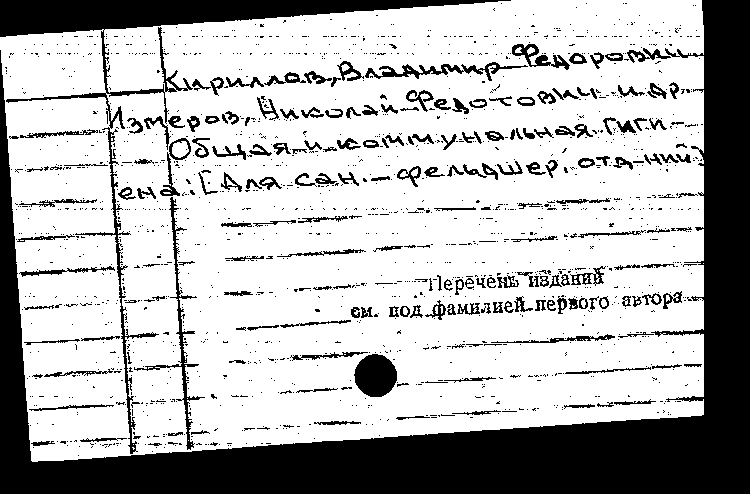 Кириллов, Владимир Федорович
Измеров, Николай Федотович и др.
Общая и коммунальная гиги-
ена: [Для сан. - фельдшер. отд-ний]
Перечень изданий
см. под фамилией первого автора